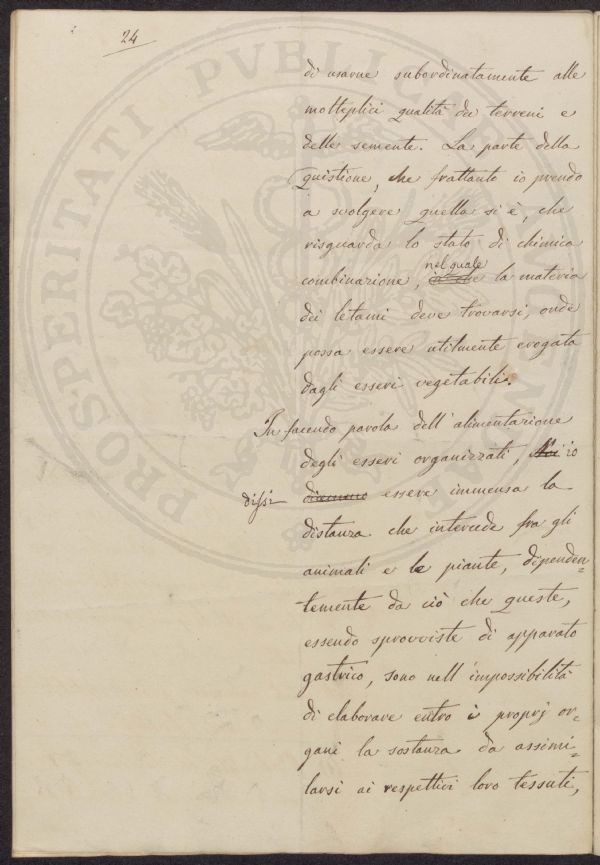 24
di usarne subordinatamente alle
molteplici qualità dei terreni e
delle semente. La parte della
quistione, che frattanto io prendo
a svolgere quella si è, che
risguarda lo stato di chimica
nel quale
combinazione, la materia
dei letami deve trovarsi, onde
possa essere utilmente erogata
dagli esseri vegetabili.
In facendo parola dell'alimentazione
degli esseri organizzati, Noi io
dissi diciamo essere immensa la
distanza che intercede fra gli
animali e le piante, dipenden=
temente da ciò che queste,
essendo sprovviste di apparato
gastrico, sono nell'impossibilità
di elaborare entro i proprj or=
gani la sostanza da assimi=
larsi ai respettivi loro tessuti,
PROSPERITATI PVBLICAE AVGENDAE